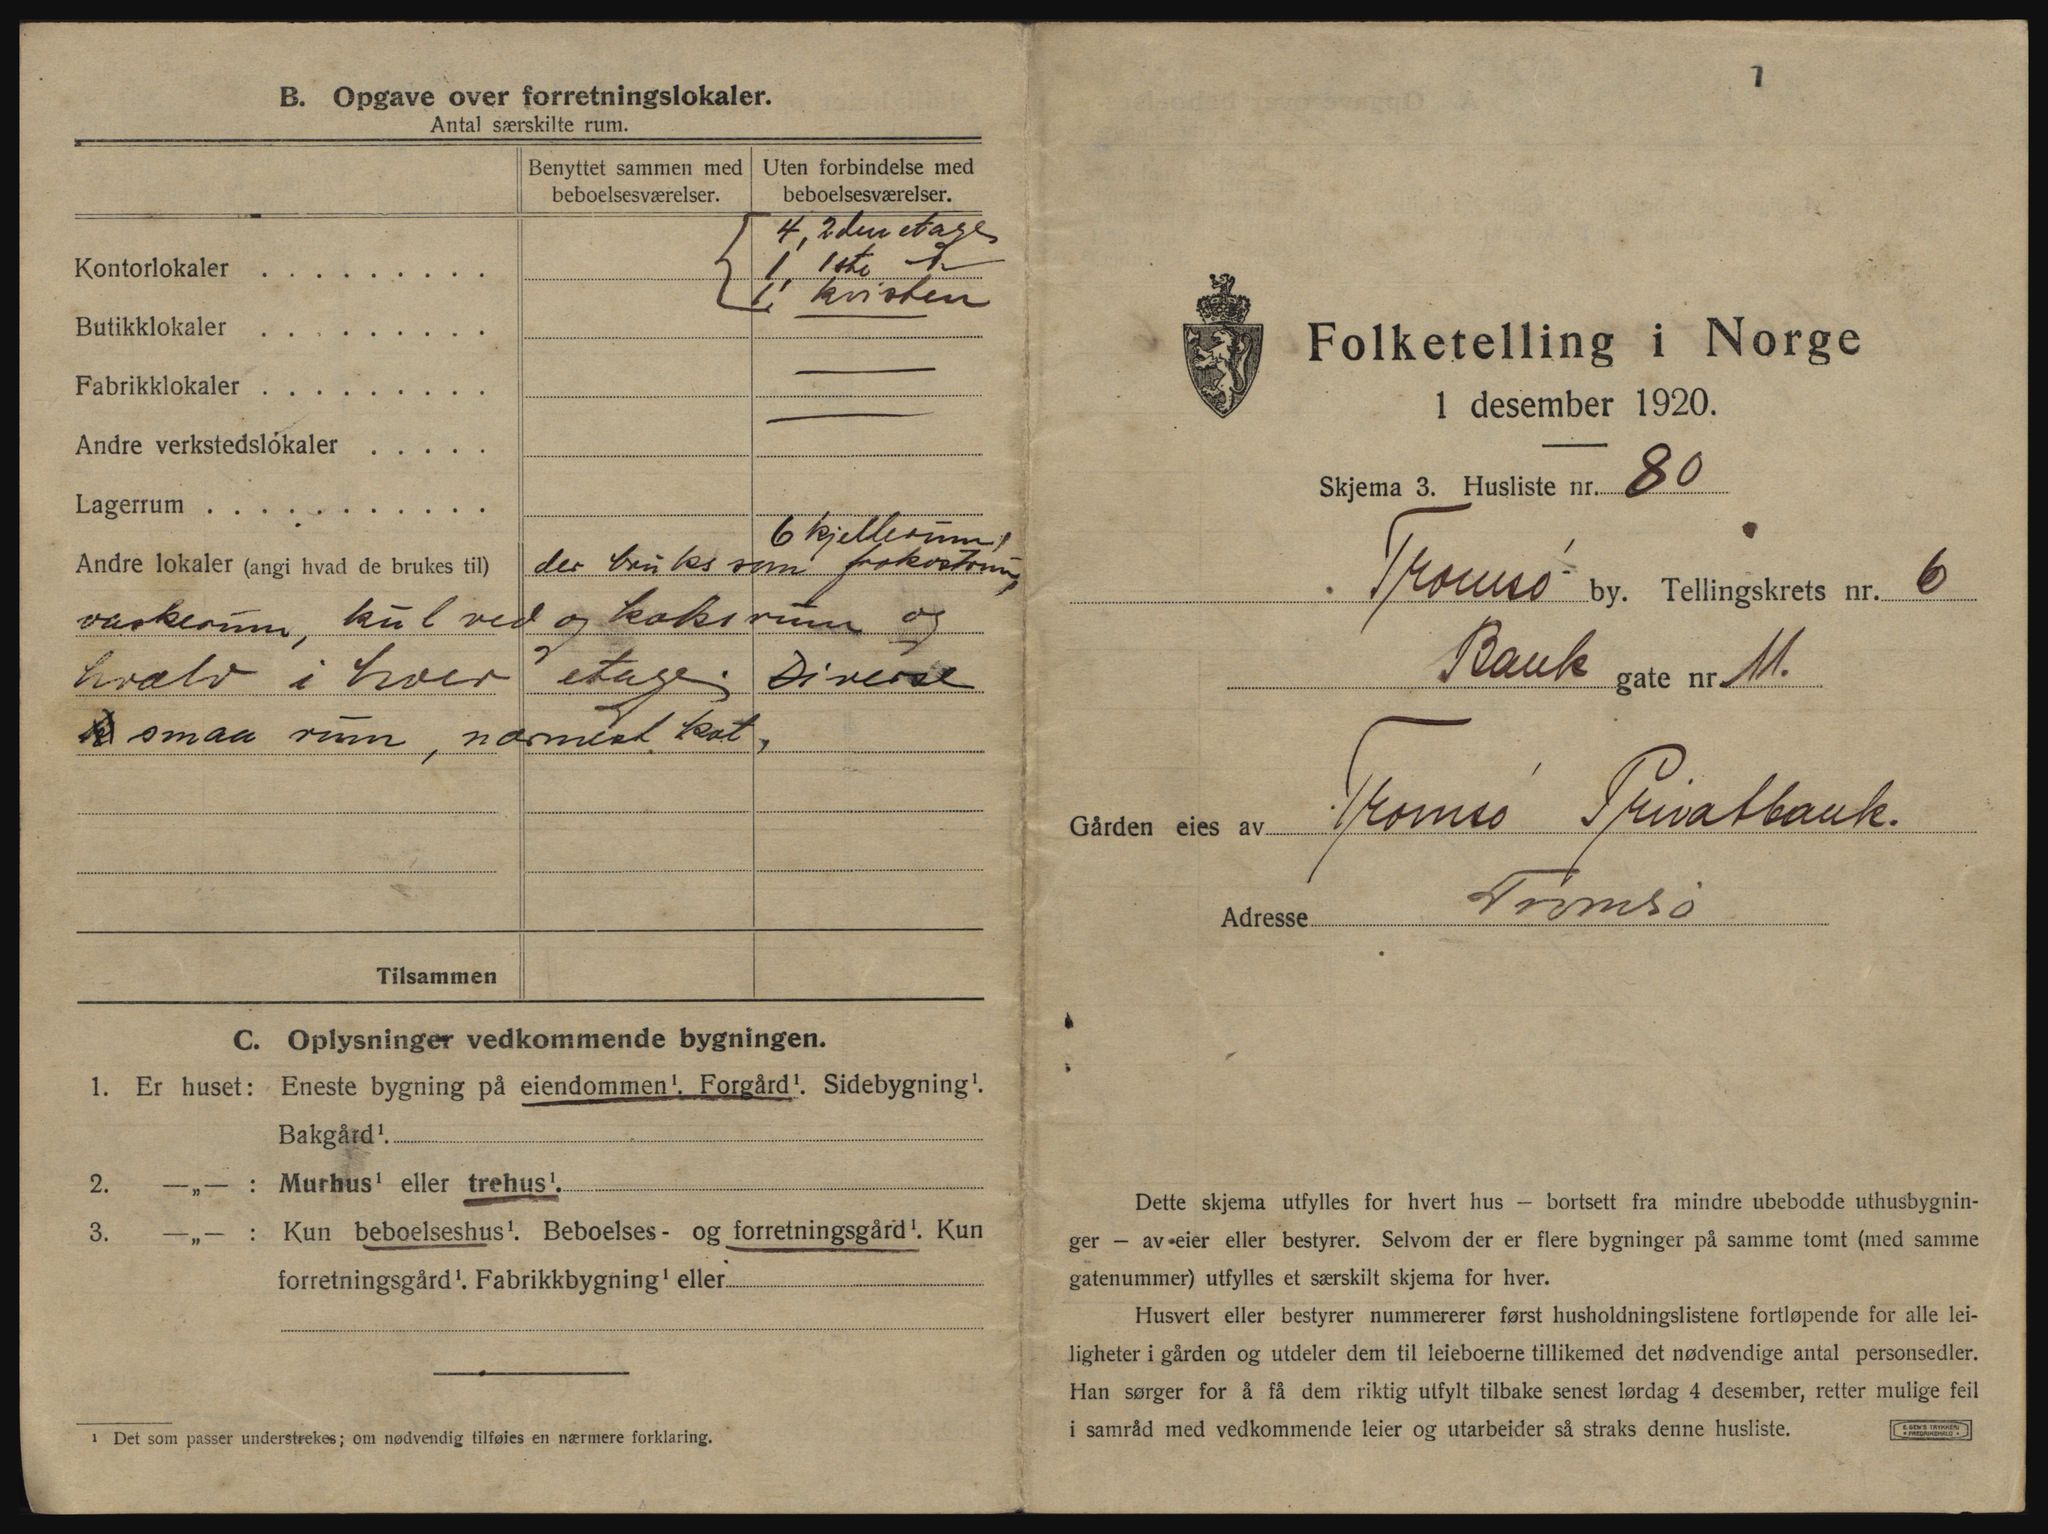 B. Opgave over forretningslokaler.
Antal særskilte rum.
Benyttet sammen med beboelsesværelser.
Uten forbindelse med beboelsesværelser.
4, 2den etage
Kontorlokaler . . . . . . . . .
1, 1ste do
1, kvisten
Butikklokaler . . . . . . . . .
Fabrikklokaler . . . . . . . . .
Andre verkstedslokaler . . . . .
Lagerrum . . . . . . . . . . . .
6 kjellerum,
Andre lokaler (angi hvad de brukes til) der bruks som frokostrum,
vaskerum, kul ved og koksrum og
hvælv i hver etage. Diverse
smaa rum, nærmest kot,
Tilsammen
C. Oplysninger vedkommende bygningen.
1. Er huset: Eneste bygning på eiendommen¹. Forgård¹. Sidebygning¹.
Bakgård¹.
2. —„— : Murhus¹ eller trehus¹.
3. —„— : Kun beboelseshus¹. Beboelses- og forretningsgård¹. Kun
forretningsgård¹. Fabrikkbygning¹ eller
¹ Det som passer understrekes; om nødvendig tilføies en nærmere forklaring.
7
Folketelling i Norge
1 desember 1920.
Skjema 3. Husliste nr. 80
Tromsö by. Tellingskrets nr. 6
Bank gate nr. 11.
Gården eies av Tromsö Privatbank.
Adresse Tromsö
Dette skjema utfylles for hvert hus – bortsett fra mindre ubebodde uthusbygnin-
ger – av eier eller bestyrer. Selvom der er flere bygninger på samme tomt (med samme
gatenummer) utfylles et særskilt skjema for hver.
Husvert eller bestyrer nummererer først husholdningslistene fortløpende for alle lei-
ligheter i gården og utdeler dem til leieboerne tillikemed det nødvendige antal personsedler.
Han sørger for å få dem riktig utfylt tilbake senest lørdag 4 desember, retter mulige feil
i samråd med vedkommende leier og utarbeider så straks denne husliste.
E. SEM'S TRYKKERI
FREDRIKSHALD